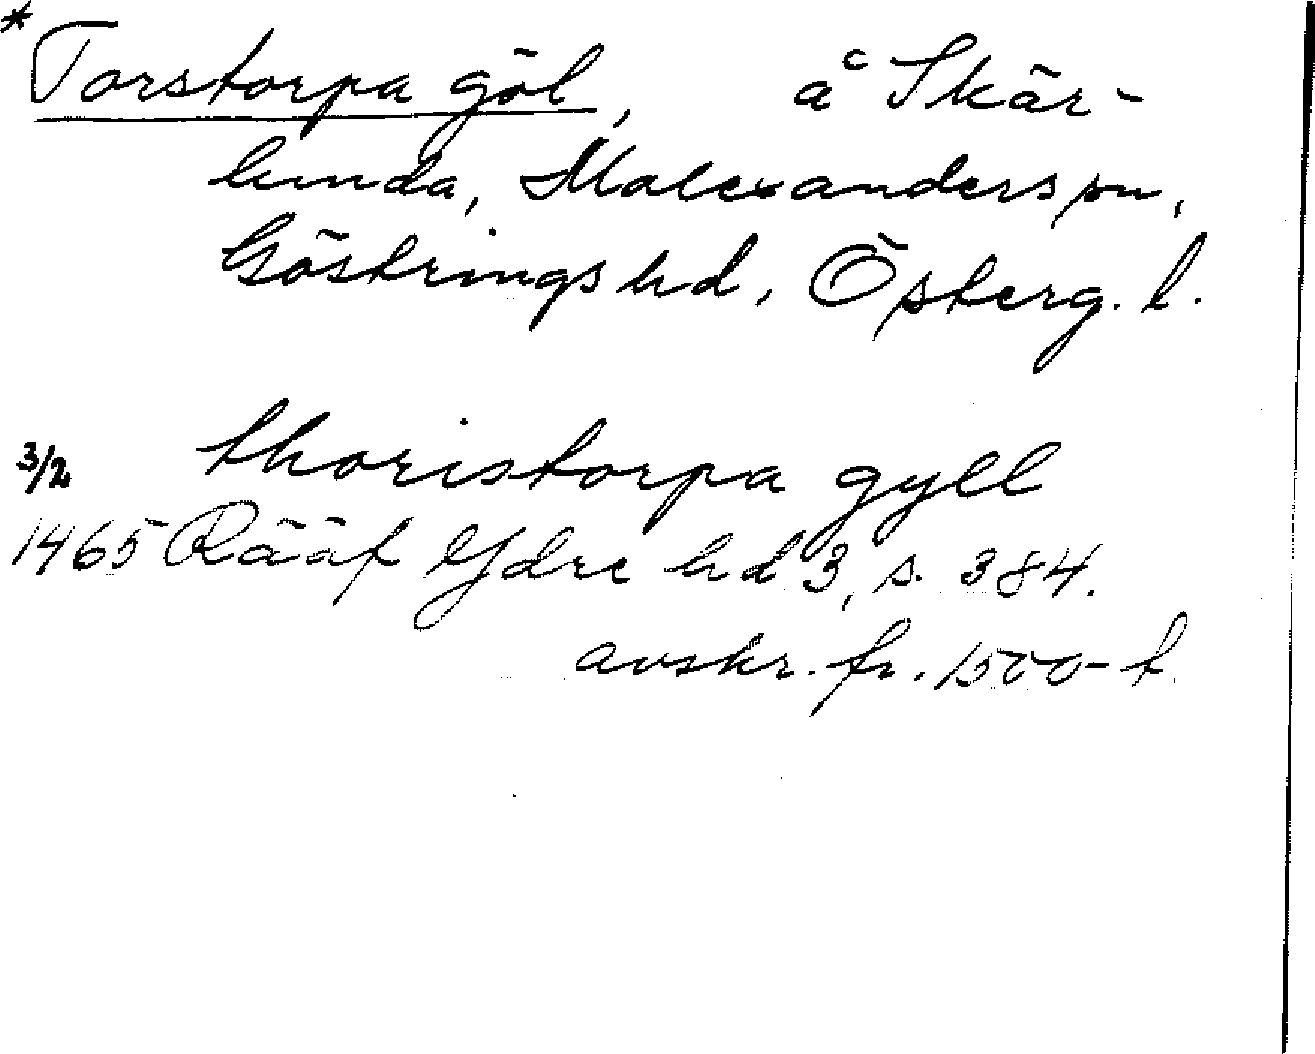 * Torstorpa göl, å Skär-
lunda, Malexanders sn,
Göstrings hd, Österg. l.
3/2 thoristorpa gyll
1465 Rääf Ydre hd 3, s. 384.
avskr. fr. 1500-t